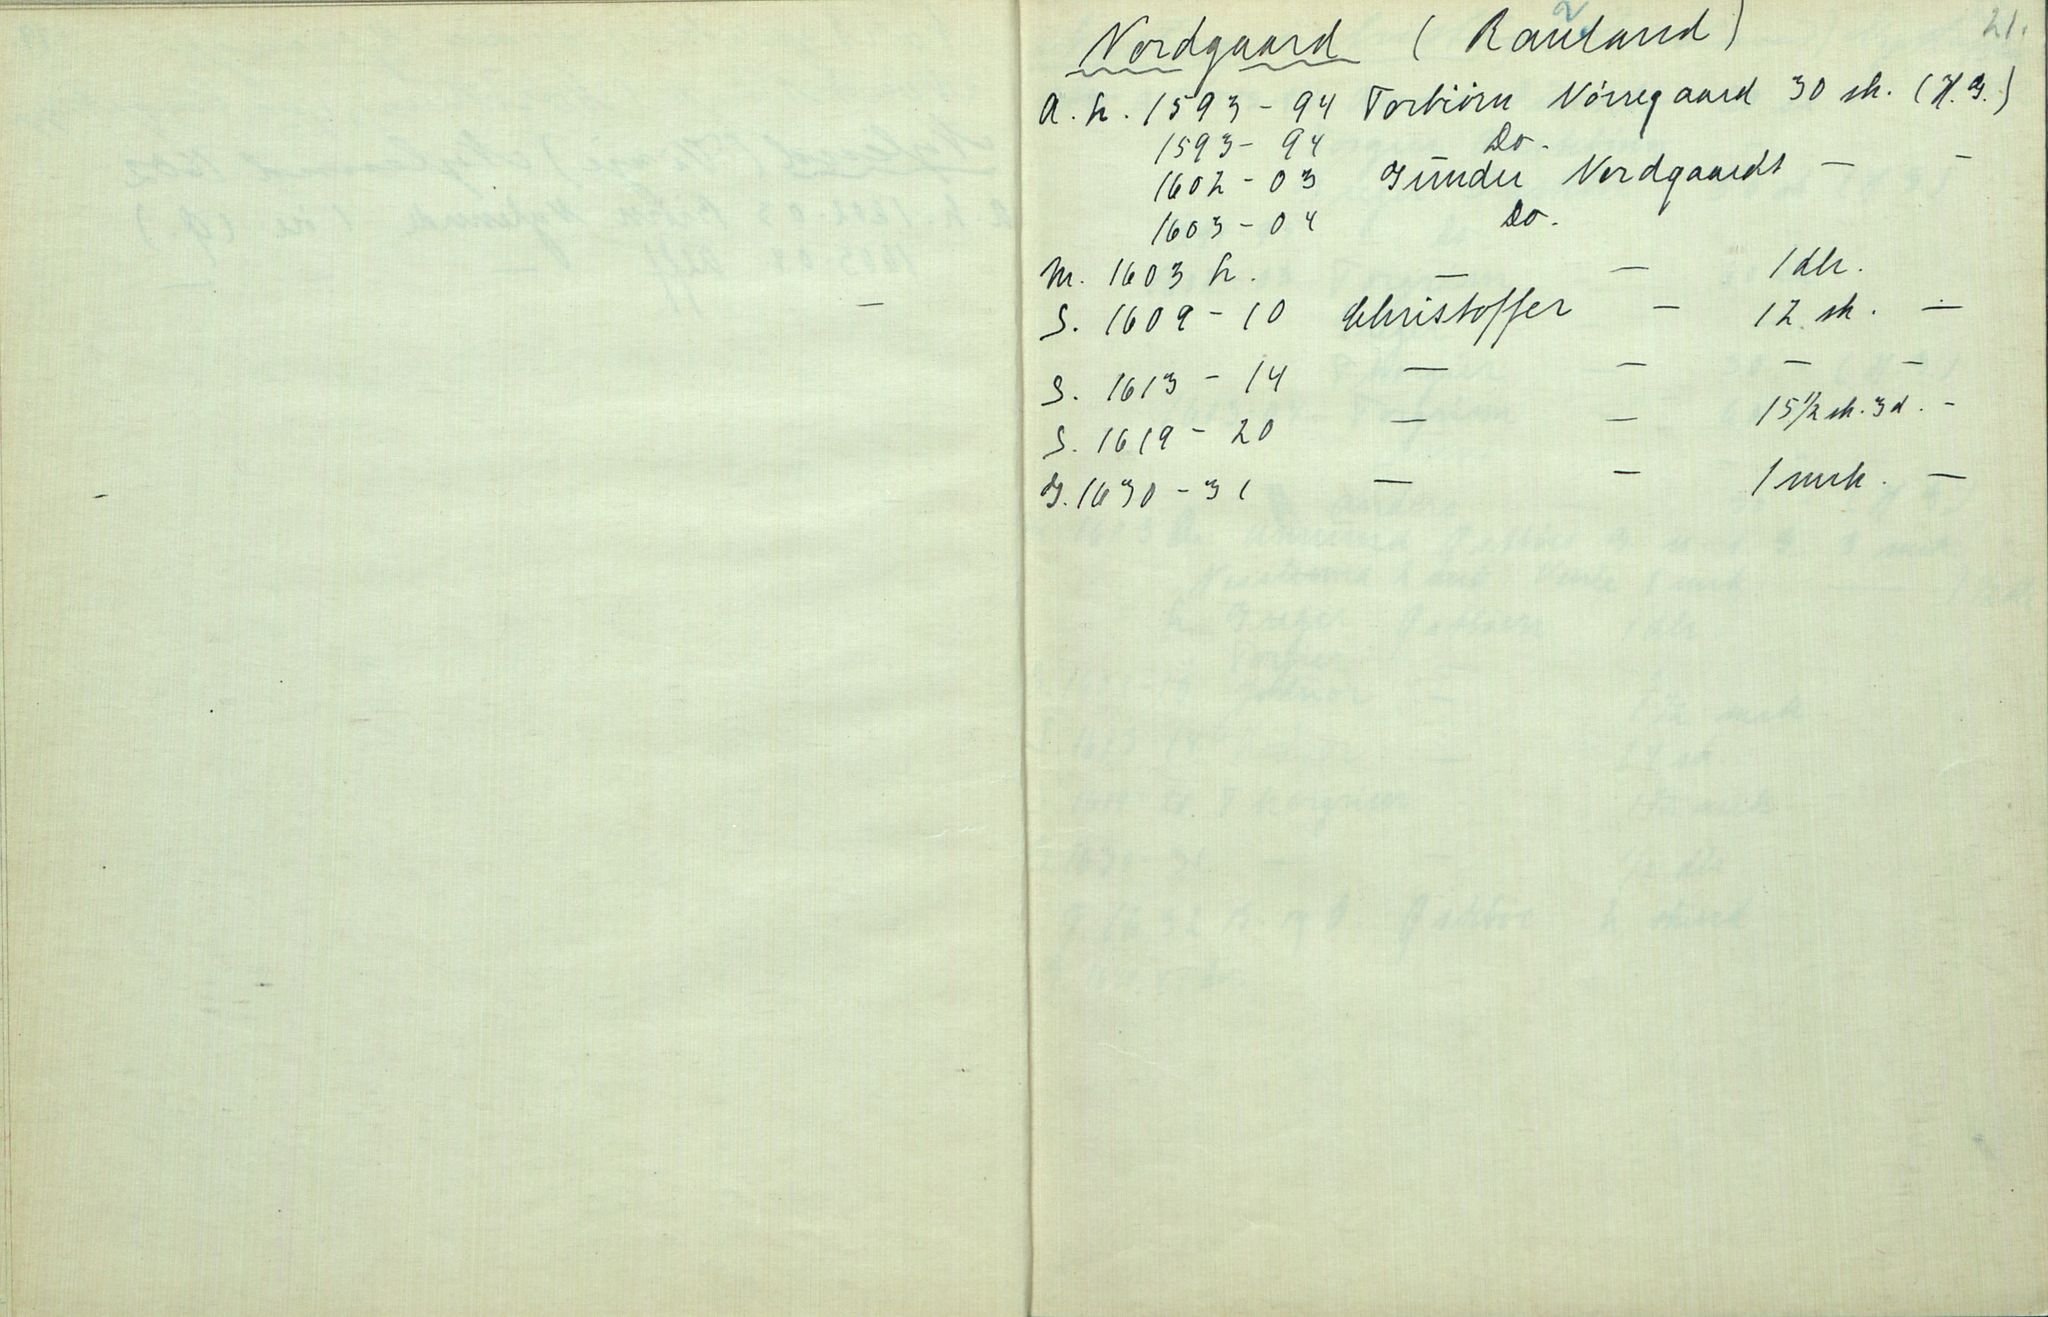 21.
Nordgaard (Rauland)
A. h. 1593 - 94 Torbiörn Nörregaard 30 sk. (H. G.)
1593 - 94 Do.
1602 - 03 Gunder Nordgaardt — —
1603 - 04 Do.
M. 1603 h. — — 1 dlr.
S. 1609 - 10 Christoffer — 12 sk. —
S. 1613 - 14 — — — —
S. 1619 - 20 — — 15 1/2 sk. 3 d. -
G. 1630 - 31 — — 1 mrk. —